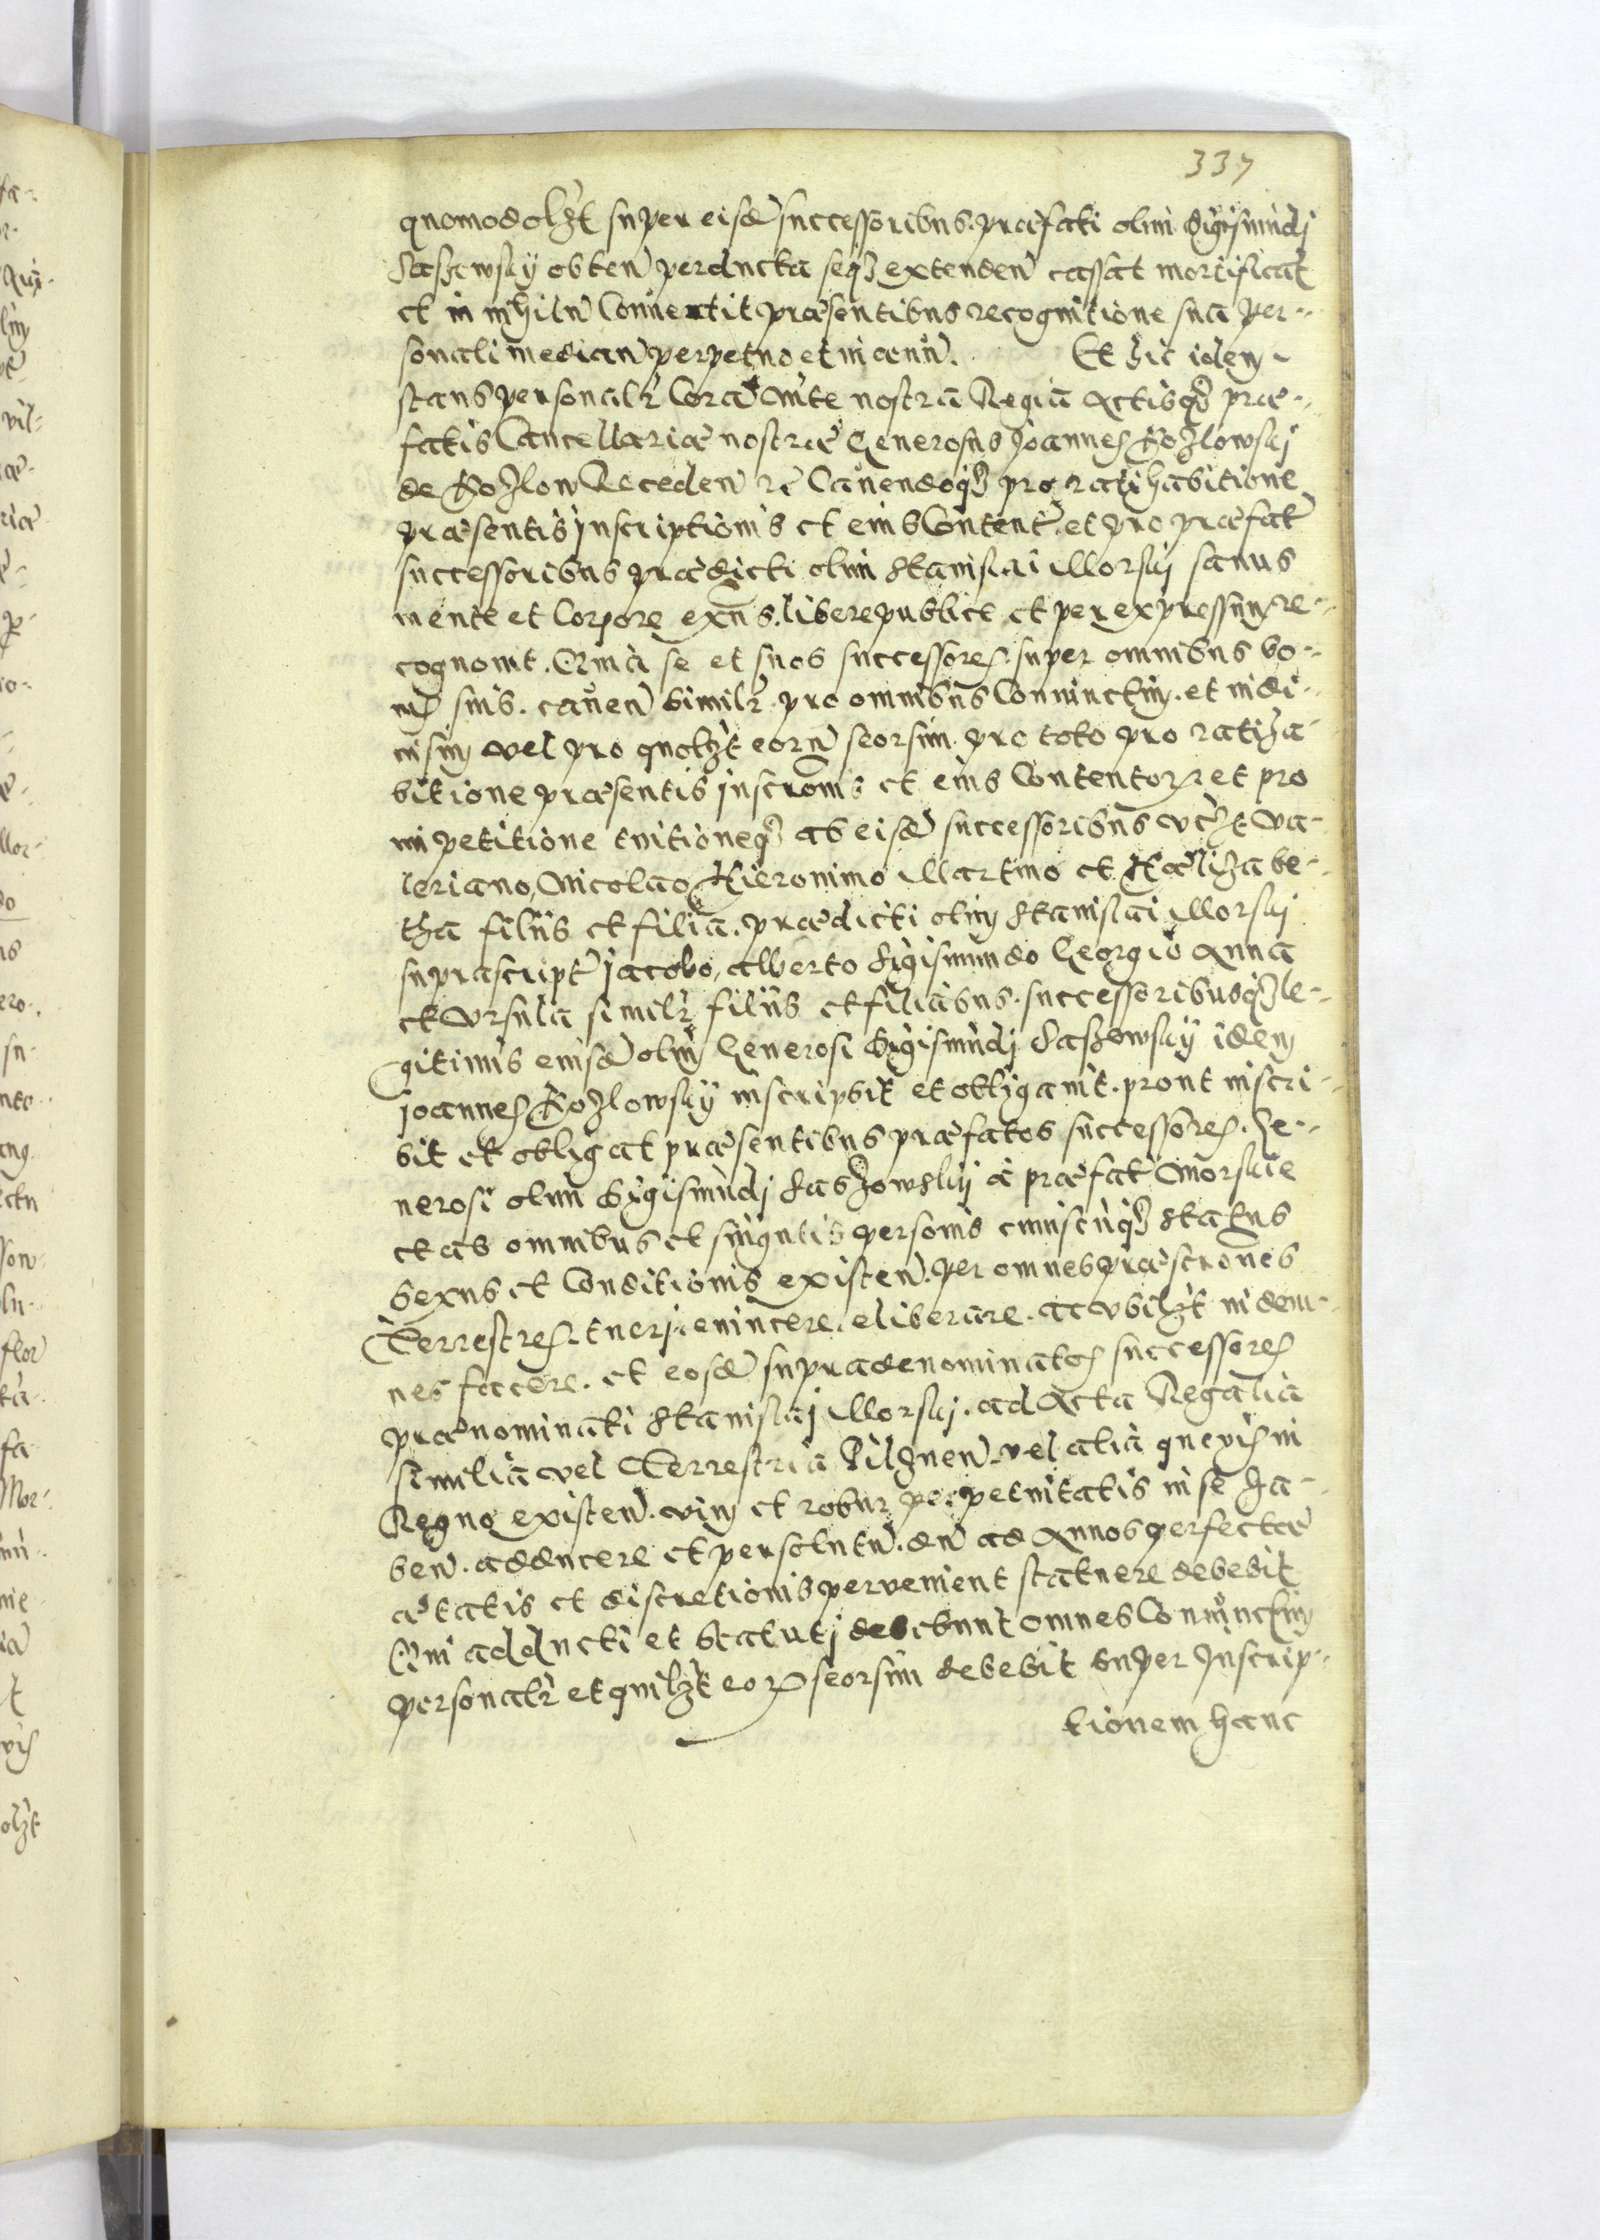 337
quomodolzt super eisdẽ successoribus præfati olim Sigismundj
Laszowsky obten̄ perducta seqz extenden̄ cassat mortificat
et in nihilũ conuertit præsentibus recognitione sua per-
sonali median̄ perpetuo et in æuũ. Et hic idem
stans personalr̃ corã Mte nostra Regia Actisqz præ-
fatis Cancellariæ nostræ Generosus Joannes Kozlowskj
de Kozlow Receden̄ rc̃ Cauendoqz pro ratihabitione
præsentis jnscriptionis et eius content. et pro præfat
successoribus prædicti olim Stanislai Morskj sanus
mente et corpore exñs. libere publice et per expressum re-
cognouit. Quia se et suos successores. super omnibus bo-
nis suis. cauen̄ similr̃ pro omnibus coniunctim. et indi-
uisim vel pro quolzt eorũ seorsim. pro toto pro ratiha-
bitione præsentis jnscrõnis et eius contentorũ et pro
impetitione euitioneqz ab eisdẽ successoribus vczt Va-
leriano, Nicolao Hieronimo Martino et Heliza be-
tha filiis et filia. prædicti olim Stanislai Morskj
suprascript Jacobo, Alberto Sigismundo Georgio Anna
et Vrsula similr̃ filiis et filiabus. successoribusqz le-
gitimis eiusdẽ olim Generosi Sigismundj Laszowsky idem
Joannes Kozlowsky inscripsit et obligauit. prout inscri-
bit et obligat præsentibus præfatos successores. Ge-
nerosi olim Sigismundj Laszowskij à præfat Morskie
et ab omnibus et singulis personis cuiuscũqz status
sexus et conditionis existen̄. per omnes præscrõnes
Terrestres. tuerj. euincere. eliberare. ac vbilzt indem-
nes facere. et eosdẽ supradenominatos successores
prænominati Stanislaj Morskj. ad Acta Regalia
similia vel Terrestria Pilznen̄ vel alia queuis in
Regno existen̄. vim et robur perpetuitatis in se ha-
ben̄. adducere et persolutũ. dũ ad Annos perfectæ
ætatis et discretionis peruenient statuere debebit
Qui adducti et statutj debebunt omnes coniunctim
personalr̃ et quilzt eorũ seorsim debebit super Jnscrip-
tionem hanc